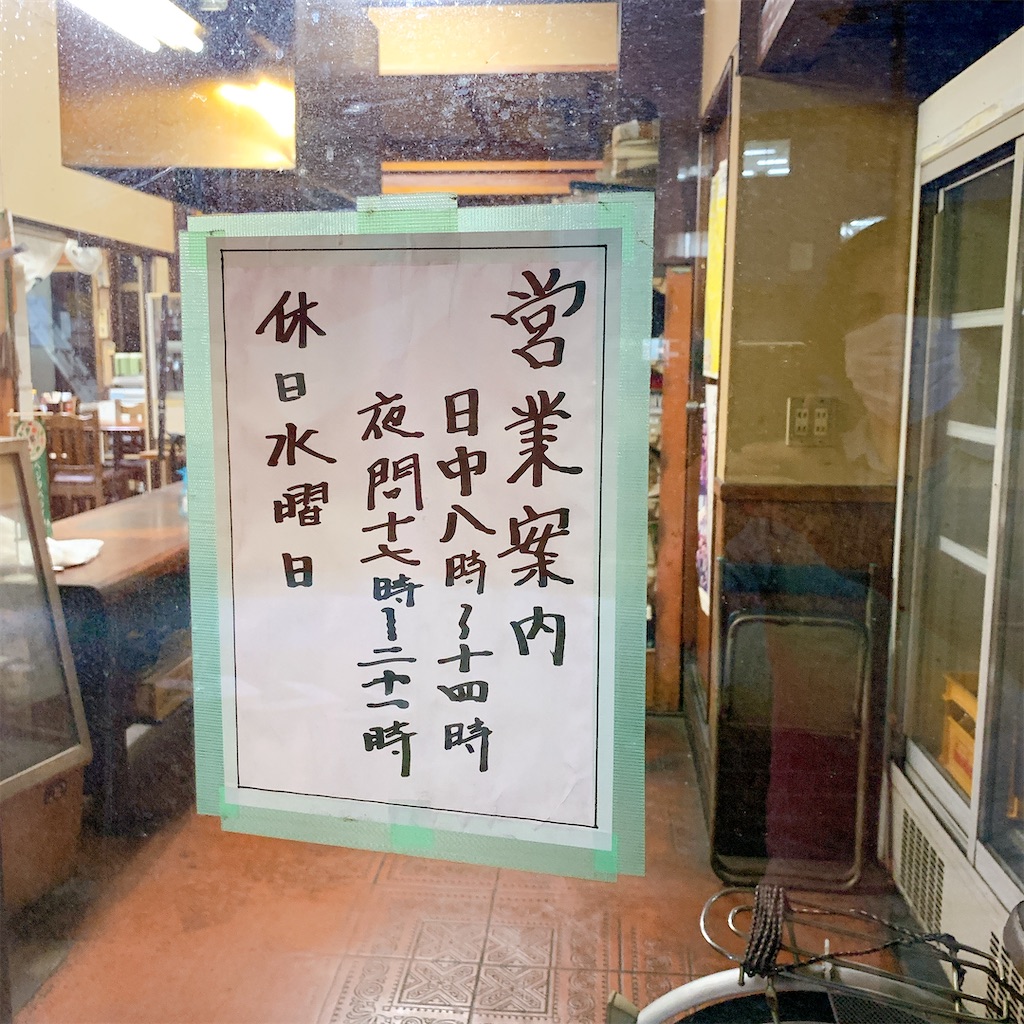 営業案内
日中八時〜十四時
夜間十七時〜二十一時
休日水曜日